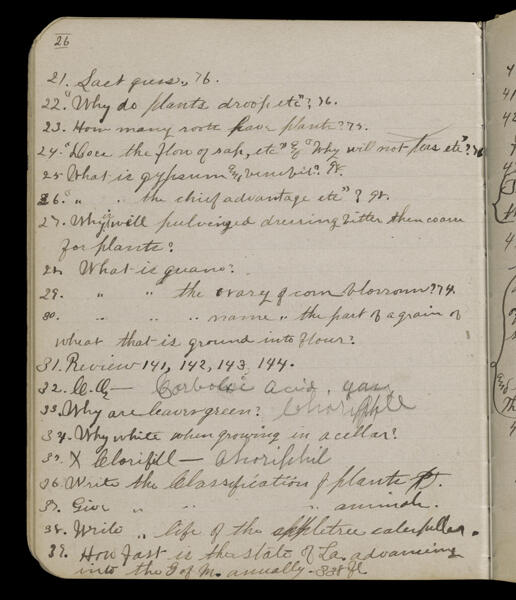 26
21. Last ques., 76.
22. "Why do plants droop etc"? 76.
23. How many roots have plants? 75.
24. "Does the flow of sap, etc" & "Why will not etc"? 76
25 What is gypsum & benefit? 98.
26. " " the chief advantage etc"? 98.
27. Why is well pulverized dressing bitter then coarse
for plants?
28. What is guano?
29. " " the ovary of corn blossom? 74.
30. " " " name " the part of a grain of
wheat that is ground into flour?
31. Review 141, 142, 143, 144.
32. C.O2 — Carbolic acid, gas
33. Why are leaves green? Chloriphle
34. Why white when growing in a cellar?
35. X Clorifill — Chloriphil
36. Write the Classification of plants
37. Give " " " animals.
38. Write " life of the appletree caterpillar.
39. How fast is the state of La. advancing
into the G of M. anually - 338 ft